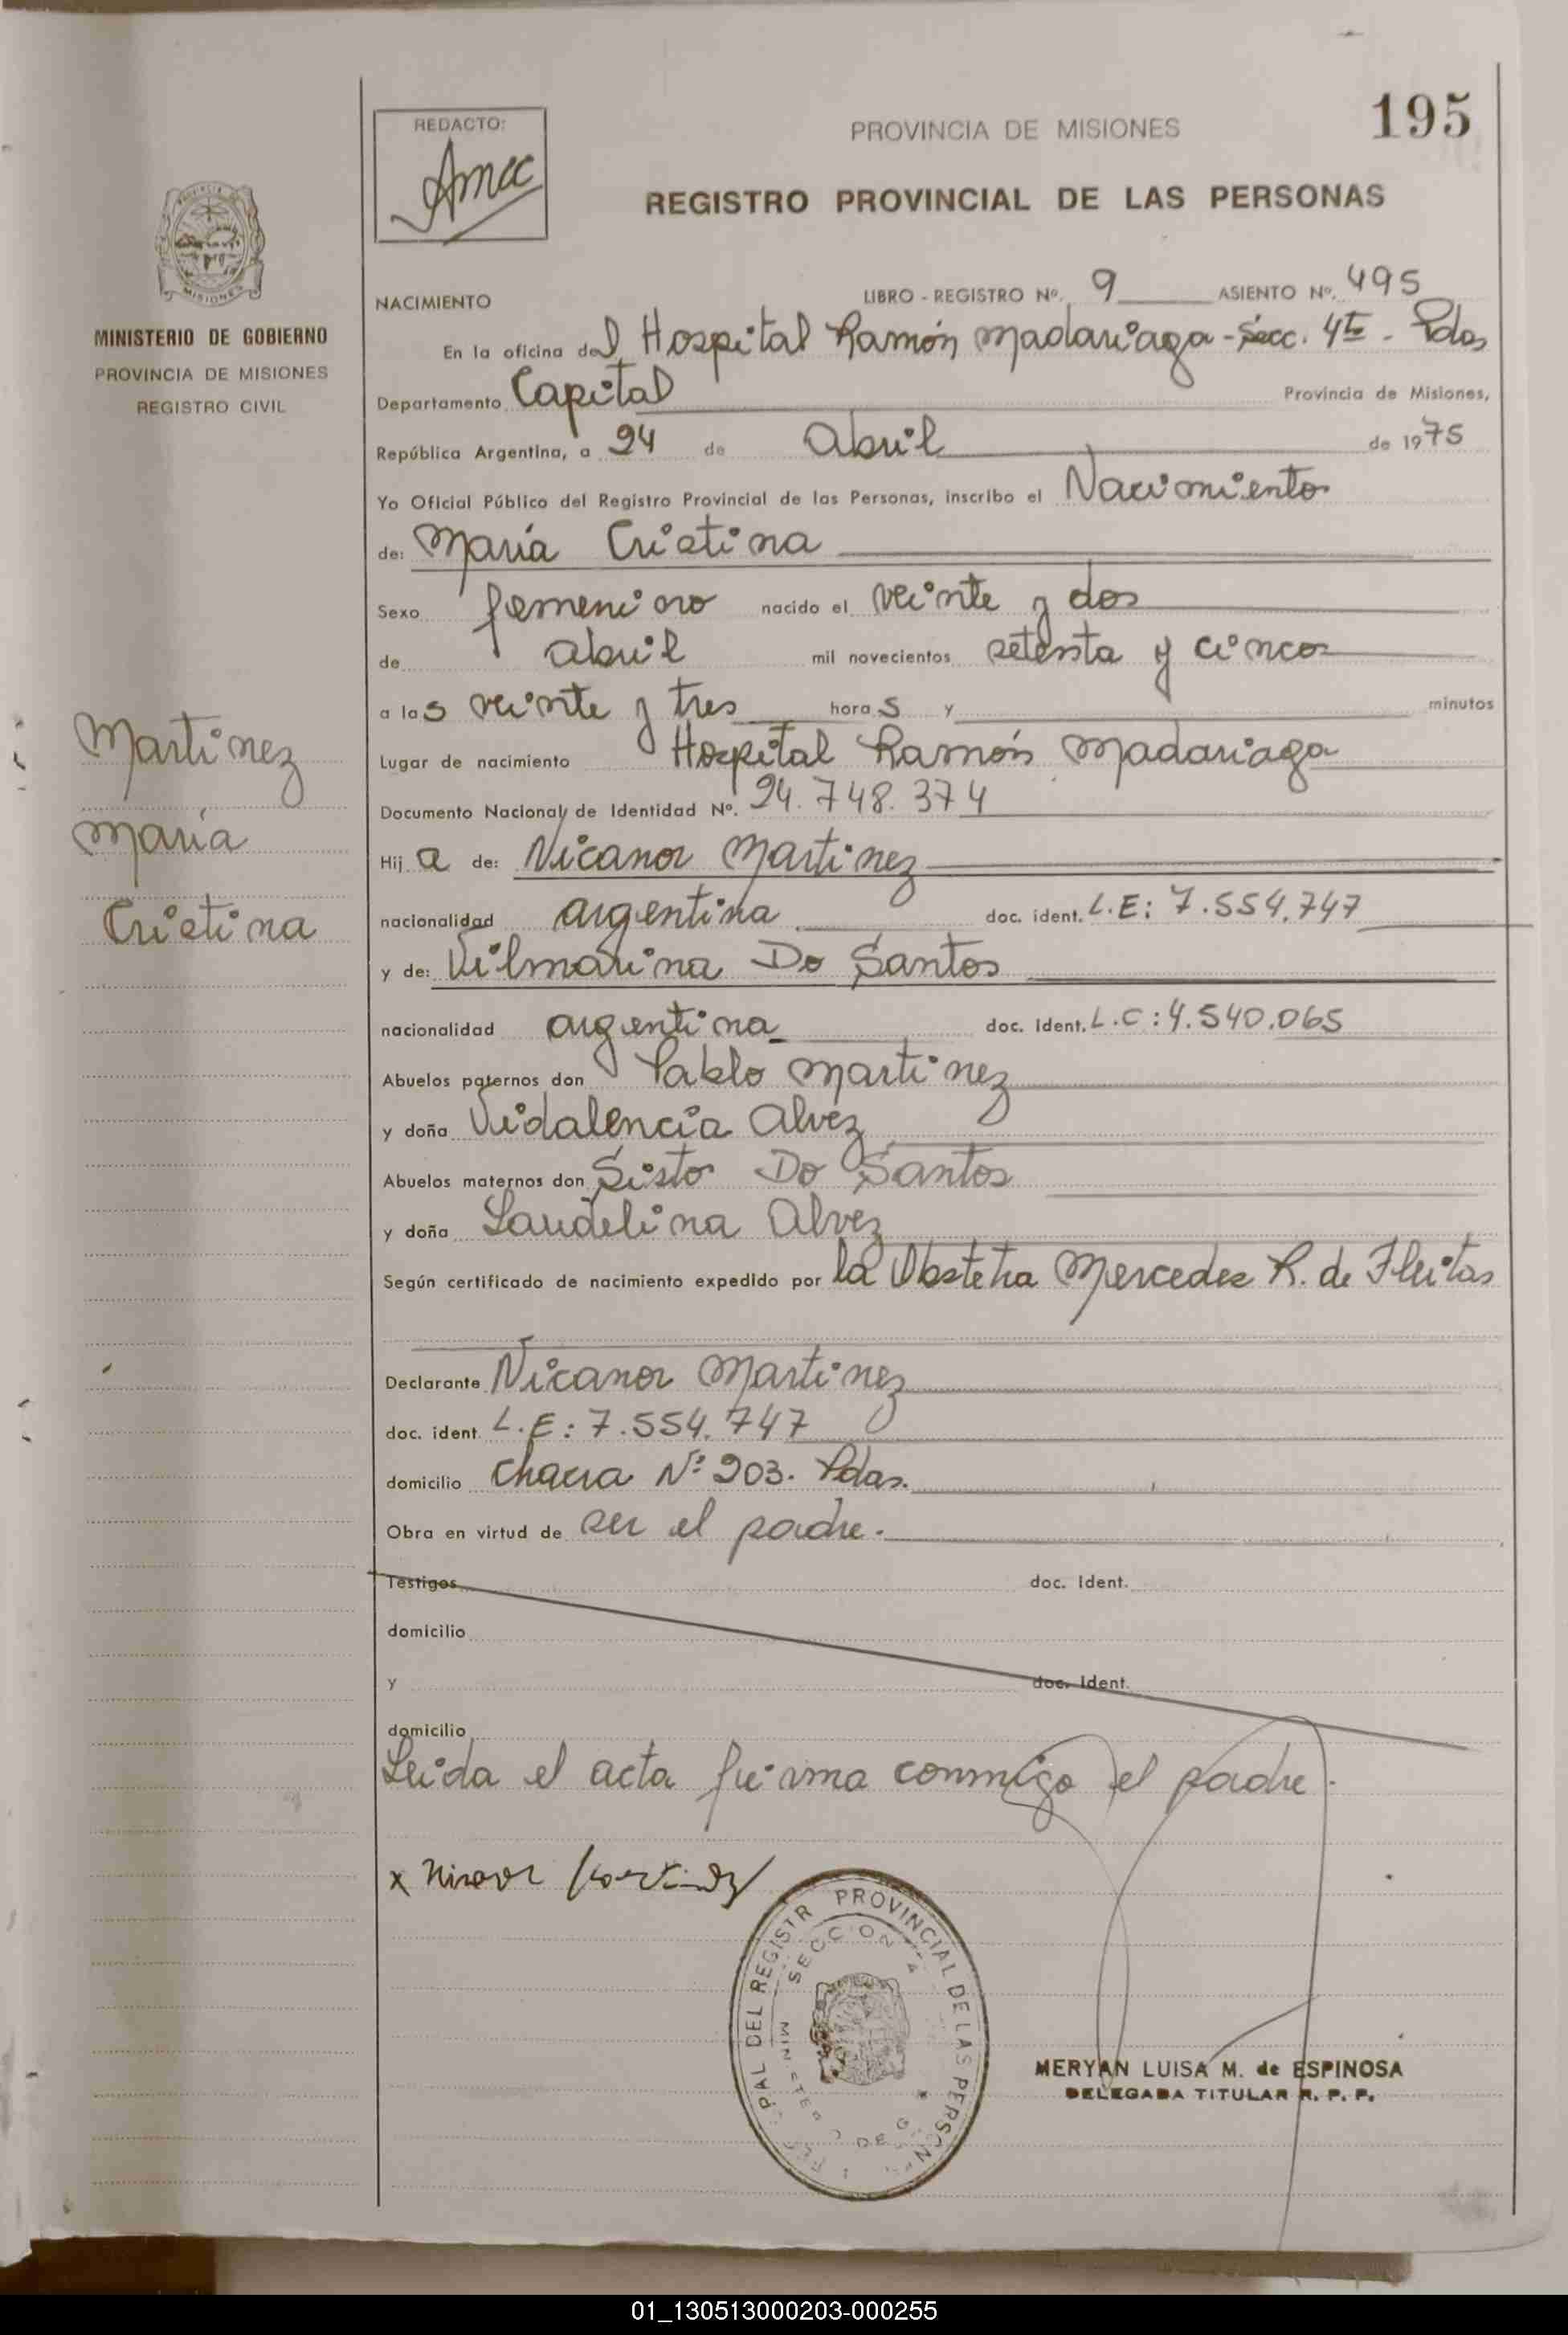 195
REDACTO:
PROVINCIA DE MISIONES
REGISTRO PROVINCIAL DE LAS PERSONAS
MINISTERIO DE GOBIERNO
PROVINCIA DE MISIONES
REGISTRO CIVIL
NACIMIENTO LIBRO - REGISTRO Nº. 9 ASIENTO Nº. 495
En la oficina del Hospital Ramón Madariaga - Secc. 4ta - Pdas
Departamento Capital Provincia de Misiones,
República Argentina, a 24 de Abril de 1975
Yo Oficial Público del Registro Provincial de las Personas, inscribo el Nacimiento
de: María Cristina
Sexo femenino nacido el veinte y dos
de abril mil novecientos setenta y cinco
a las veinte y tres horas y minutos
Lugar de nacimiento Hospital Ramón Madariaga
Documento Nacional de Identidad Nº. 24.748.374
Hija de: Nicanor Martinez
nacionalidad argentina doc. ident. L.E: 7.554.747
y de: Vilmarina Do Santos
nacionalidad argentina doc. Ident. L.C: 4.540.065
Abuelos paternos don Pablo Martinez
y doña Vidalencia Alvez
Abuelos maternos don Sisto Do Santos
y doña Laudelina Alvez
Según certificado de nacimiento expedido por la Obstetra Mercedes R. de Fleitas
Declarante Nicanor Martinez
doc. ident. L.E: 7.554.747
domicilio Chacra Nº 203. Pdas.
Obra en virtud de ser el padre.
Testigos doc. Ident.
domicilio
y doc. Ident.
domicilio
Leida el acta firma conmigo el padre.
Martinez
María
Cristina
x Nicanor Martinez
PAL DEL REGISTR PROVINCIAL DE LAS PERSONAS
SECCION 4A
MERYAN LUISA M. de ESPINOSA
DELEGADA TITULAR R. P. P.
01_130513000203-000255